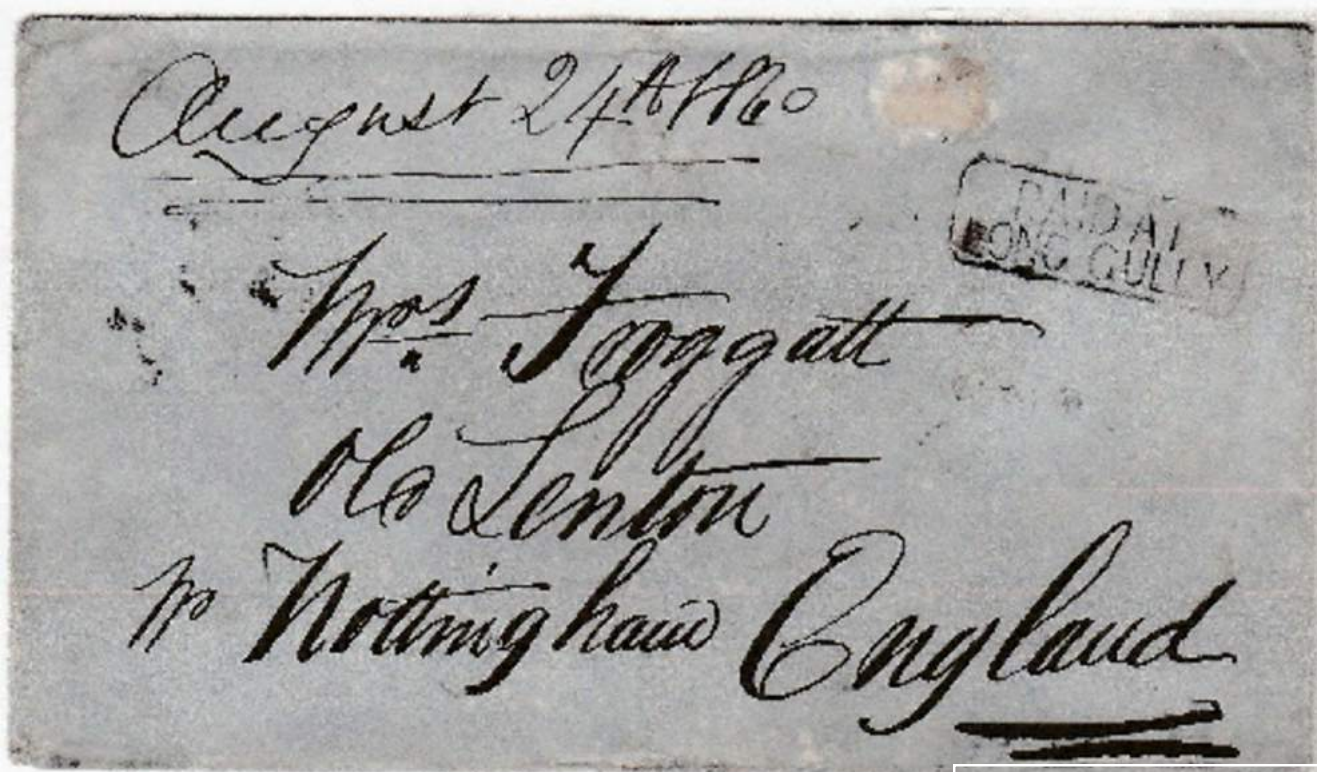 August 24th 1860
PAID AT
LONG GULLY
Mrs. Froggatt
Old Lenton
Nr Nottingham England